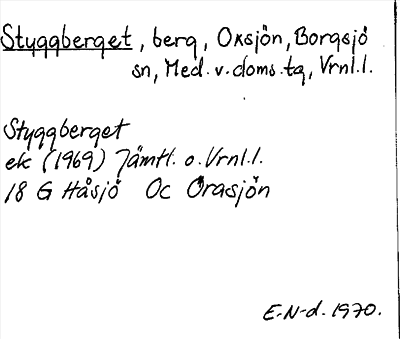 Styggberget, berg, Oxsjön, Borgsjö
sn, Med. v. doms. tg, Vrnl.l.
Styggberget
ek (1969) Jämtl. o. Vrnl.l.
18 G Håsjö Oc Orasjön
E-N-d. 1970.